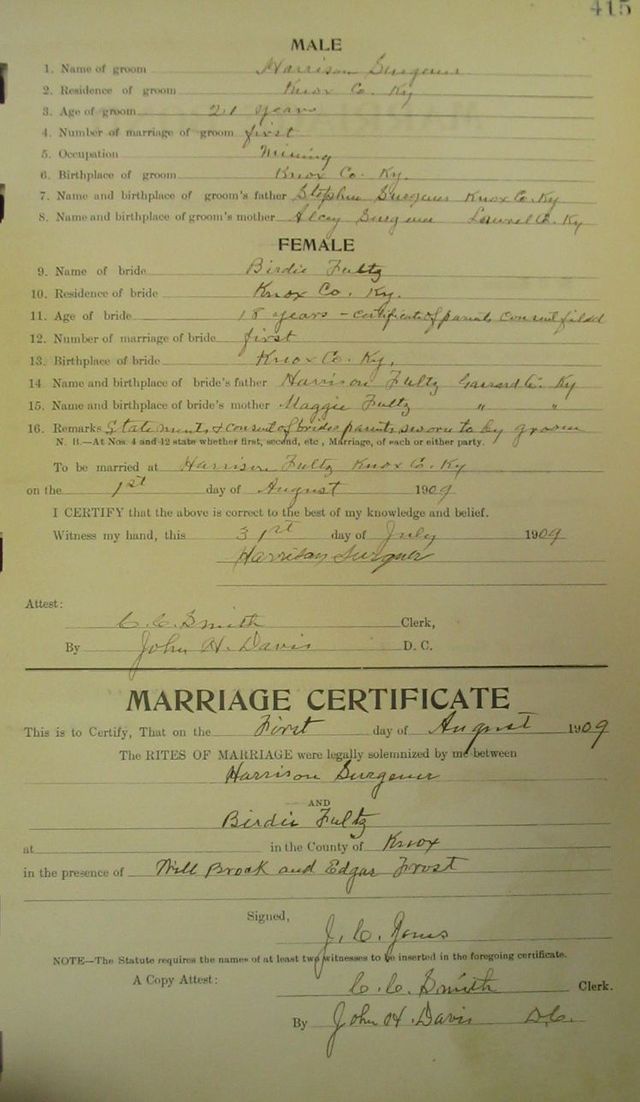 415
MALE
1. Name of groom Harrison Surgener
2. Residence of groom Knox Co. Ky
3. Age of groom 21 years
4. Number of marriage of groom first
5. Occupation Mining
6. Birthplace of groom Knox Co. Ky.
7. Name and birthplace of groom's father Stephen Surgener Knox Co. Ky
8. Name and birthplace of groom's mother Alcey Surgener Laurel Co. Ky
FEMALE
9. Name of bride Birdie Fultz
10. Residence of bride Knox Co. Ky.
11. Age of bride 18 years - certificate of parents consent filed
12. Number of marriage of bride first
13. Birthplace of bride Knox Co. Ky.
14 Name and birthplace of bride's father Harrison Fultz Garrard Co. Ky
15. Name and birthplace of bride's mother Maggie Fultz " "
16. Remarks Statements & consent of brides parents sworn to by groom
N. B.—At Nos. 4 and 12 state whether first, second, etc., Marriage, of each or either party.
To be married at Harrison Fultz Knox Co. Ky
on the 1st day of August 1909
I CERTIFY that the above is correct to the best of my knowledge and belief.
Witness my hand, this 31st day of July 1909
Harrison Surgener
Attest:
C. C. Smith Clerk,
By John H. Davis D. C.
MARRIAGE CERTIFICATE
This is to Certify, That on the First day of August 1909
The RITES OF MARRIAGE were legally solemnized by me between
Harrison Surgener
AND
Birdie Fultz
at in the County of Knox
in the presence of Will Brock and Edgar Frost
Signed,
J. C.
NOTE—The Statute requires the names of at least two witnesses to be inserted in the foregoing certificate.
A Copy Attest: C. C. Smith Clerk.
By John H. Davis D.C.